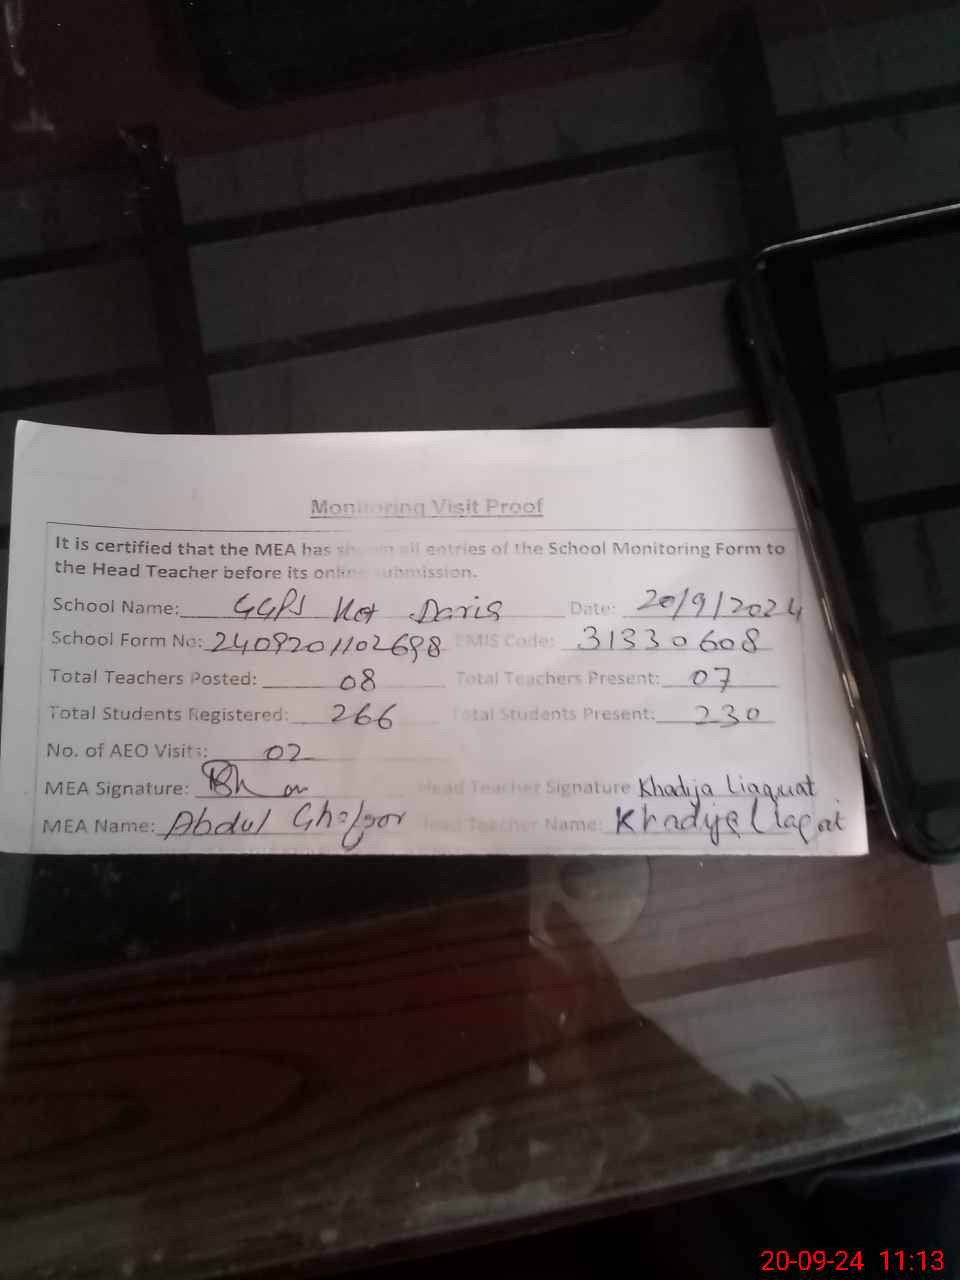 Monitoring Visit Proof
It is certified that the MEA has shown all entries of the School Monitoring Form to
the Head Teacher before its online submission.
School Name: GGPS Kot Daris Date: 20/9/2024
School Form No: 2409201102698 EMIS Code: 31330608
Total Teachers Posted: 08 Total Teachers Present: 07
Total Students Registered: 266 Total Students Present: 230
No. of AEO Visits: 02
MEA Signature: Head Teacher Signature Khadija Liaquat
MEA Name: Abdul Ghafoor Head Teacher Name: Khadija Liaqat
20-09-24 11:13